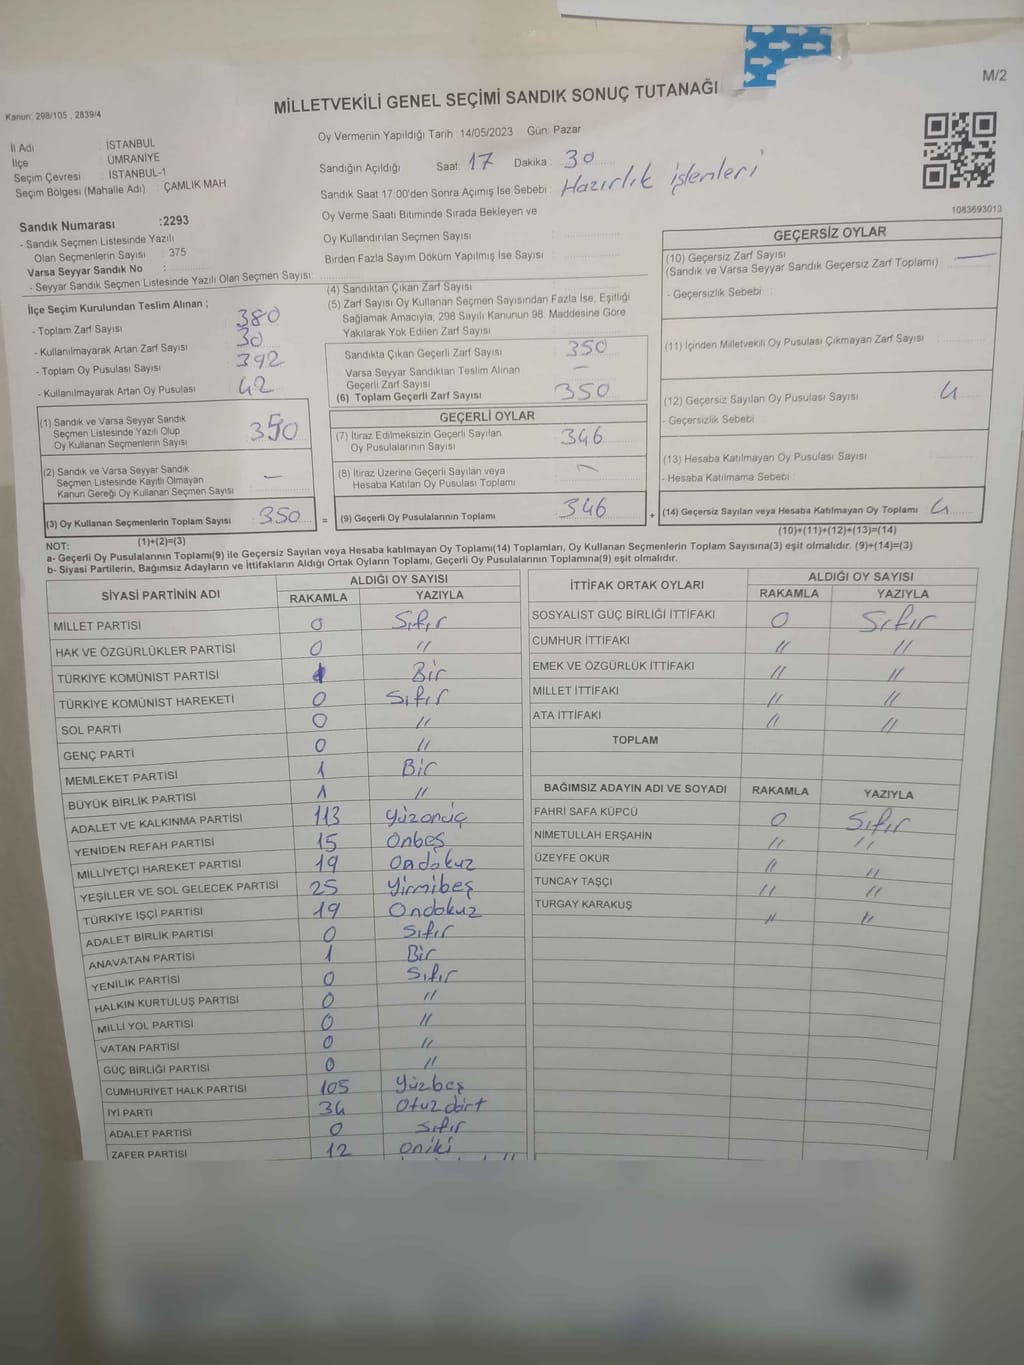 M/2
MİLLETVEKİLİ GENEL SEÇİMİ SANDIK SONUÇ TUTANAĞI
Kanun: 298/105 , 2839/4
İl Adı : İSTANBUL
İlçe : ÜMRANİYE
Seçim Çevresi : İSTANBUL-1
Seçim Bölgesi (Mahalle Adı) : ÇAMLIK MAH.
Oy Vermenin Yapıldığı Tarih :14/05/2023 Gün: Pazar
Sandığın Açıldığı Saat: 17 Dakika : 30
Sandık Saat 17:00'den Sonra Açımış İse Sebebi : Hazırlık işlemleri
Oy Verme Saati Bitiminde Sırada Bekleyen ve
Oy Kullandırılan Seçmen Sayısı :
Birden Fazla Sayım Döküm Yapılmış İse Sayısı :
1083693013
Sandık Numarası :2293
- Sandık Seçmen Listesinde Yazılı
Olan Seçmenlerin Sayısı : 375
Varsa Seyyar Sandık No :
- Seyyar Sandık Seçmen Listesinde Yazılı Olan Seçmen Sayısı:
İlçe Seçim Kurulundan Teslim Alınan ;
- Toplam Zarf Sayısı 380
- Kullanılmayarak Artan Zarf Sayısı 30
- Toplam Oy Pusulası Sayısı 392
- Kullanılmayarak Artan Oy Pusulası 42
(1) Sandık ve Varsa Seyyar Sandık
Seçmen Listesinde Yazılı Olup
Oy Kullanan Seçmenlerin Sayısı 350
(2) Sandık ve Varsa Seyyar Sandık
Seçmen Listesinde Kayıtlı Olmayan
Kanun Gereği Oy Kullanan Seçmen Sayısı —
(3) Oy Kullanan Seçmenlerin Toplam Sayısı 350 =
(1)+(2)=(3)
(4) Sandıktan Çıkan Zarf Sayısı
(5) Zarf Sayısı Oy Kullanan Seçmen Sayısından Fazla İse, Eşitliği
Sağlamak Amacıyla; 298 Sayılı Kanunun 98. Maddesine Göre
Yakılarak Yok Edilen Zarf Sayısı
Sandıkta Çıkan Geçerli Zarf Sayısı 350
Varsa Seyyar Sandıktan Teslim Alınan
Geçerli Zarf Sayısı —
(6) Toplam Geçerli Zarf Sayısı 350
GEÇERLİ OYLAR
(7) İtiraz Edilmeksizin Geçerli Sayılan
Oy Pusulalarının Sayısı 346
(8) İtiraz Üzerine Geçerli Sayılan veya
Hesaba Katılan Oy Pusulası Toplamı —
(9) Geçerli Oy Pusulalarının Toplamı 346 +
GEÇERSİZ OYLAR
(10) Geçersiz Zarf Sayısı
(Sandık ve Varsa Seyyar Sandık Geçersiz Zarf Toplamı) —
- Geçersizlik Sebebi :
(11) İçinden Milletvekili Oy Pusulası Çıkmayan Zarf Sayısı
(12) Geçersiz Sayılan Oy Pusulası Sayısı 4
- Geçersizlik Sebebi
(13) Hesaba Katılmayan Oy Pusulası Sayısı
- Hesaba Katılmama Sebebi
(14) Geçersiz Sayılan veya Hesaba Katılmayan Oy Toplamı 4
(10)+(11)+(12)+(13)=(14)
NOT:
a- Geçerli Oy Pusulalarının Toplamı(9) ile Geçersiz Sayılan veya Hesaba katılmayan Oy Toplamı(14) Toplamları, Oy Kullanan Seçmenlerin Toplam Sayısına(3) eşit olmalıdır. (9)+(14)=(3)
b- Siyasi Partilerin, Bağımsız Adayların ve İttifakların Aldığı Ortak Oyların Toplamı, Geçerli Oy Pusulalarının Toplamına(9) eşit olmalıdır.
SİYASİ PARTİNİN ADI ALDIĞI OY SAYISI
RAKAMLA YAZIYLA
MİLLET PARTİSİ 0 Sıfır
HAK VE ÖZGÜRLÜKLER PARTİSİ 0 //
TÜRKİYE KOMÜNİST PARTİSİ 1 Bir
TÜRKİYE KOMÜNİST HAREKETİ 0 Sıfır
SOL PARTİ 0 //
GENÇ PARTİ 0 //
MEMLEKET PARTİSİ 1 Bir
BÜYÜK BİRLİK PARTİSİ 1 //
ADALET VE KALKINMA PARTİSİ 113 Yüzonüç
YENİDEN REFAH PARTİSİ 15 Onbeş
MİLLİYETÇİ HAREKET PARTİSİ 19 Ondokuz
YEŞİLLER VE SOL GELECEK PARTİSİ 25 Yirmibeş
TÜRKİYE İŞÇİ PARTİSİ 19 Ondokuz
ADALET BİRLİK PARTİSİ 0 Sıfır
ANAVATAN PARTİSİ 1 Bir
YENİLİK PARTİSİ 0 Sıfır
HALKIN KURTULUŞ PARTİSİ 0 //
MİLLİ YOL PARTİSİ 0 //
VATAN PARTİSİ 0 //
GÜÇ BİRLİĞİ PARTİSİ 0 //
CUMHURİYET HALK PARTİSİ 105 Yüzbeş
İYİ PARTİ 34 Otuzdört
ADALET PARTİSİ 0 Sıfır
ZAFER PARTİSİ 12 Oniki
İTTİFAK ORTAK OYLARI ALDIĞI OY SAYISI
RAKAMLA YAZIYLA
SOSYALİST GÜÇ BİRLİĞİ İTTİFAKI 0 Sıfır
CUMHUR İTTİFAKI // //
EMEK VE ÖZGÜRLÜK İTTİFAKI // //
MİLLET İTTİFAKI // //
ATA İTTİFAKI // //
TOPLAM
BAĞIMSIZ ADAYIN ADI VE SOYADI RAKAMLA YAZIYLA
FAHRİ SAFA KÜPCÜ 0 Sıfır
NİMETULLAH ERŞAHİN // //
ÜZEYFE OKUR // //
TUNCAY TAŞÇI // //
TURGAY KARAKUŞ // //